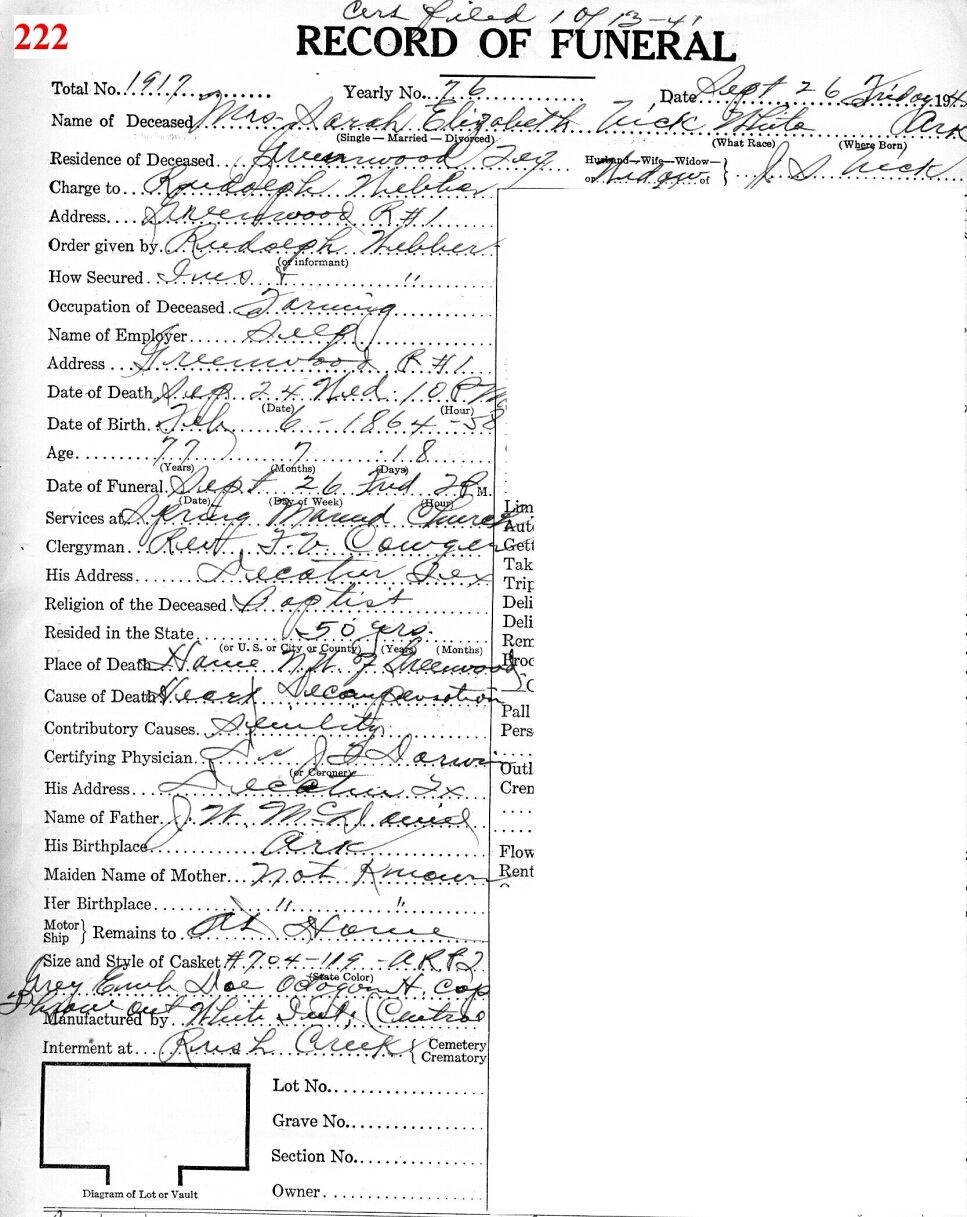 Cert filed 10/13-41
222
RECORD OF FUNERAL
Total No. 1917 Yearly No. 76 Date Sept 26 Friday 194
Name of Deceased Mrs Sarah Elizabeth Vick White Ark
(Single — Married — Divorced) (What Race) (Where Born)
Residence of Deceased Greenwood Tex Husband—Wife—Widow— or Widow of } J S Vick
Charge to Rudolph Webber
Address Greenwood R#1
Order given by Rudolph Webber
(or informant)
How Secured Ins & "
Occupation of Deceased Farming
Name of Employer Self
Address Greenwood R#1
Date of Death Sep 24 Wed 10 PM
(Date) (Hour)
Date of Birth Feb 6 - 1864 - 58
Age 77 7 18
(Years) (Months) (Days)
Date of Funeral Sept 26 Frid 2 P M.
(Date) (Day of Week) (Hour)
Services at Spring Mound Church
Clergyman Rev F.V. Cowgen
His Address Decatur Tex
Religion of the Deceased Baptist
Resided in the State 50 yrs.
(or U. S. or City or County) (Years) (Months)
Place of Death Home N.W. of Greenwood
Cause of Death Heart Decompensation
Contributory Causes Senility
Certifying Physician Dr J F Darwin
(or Coroner)
His Address Decatur Tx
Name of Father J W McDaniel
His Birthplace Ark
Maiden Name of Mother Not Known
Her Birthplace " "
Motor Ship } Remains to At Home
Size and Style of Casket #704-119 -
(State Color)
Grey Emb Doe Octogon H. Cap
Throw out
Manufactured by White Int; (Central
Interment at Rush Creek { Cemetery Crematory
Lot No.
Grave No.
Section No.
Owner
Diagram of Lot or Vault
Lim
Aut
Gett
Tak
Trip
Deli
Deli
Rem
Proc
Pall
Pers
Outl
Crem
Flow
Rent